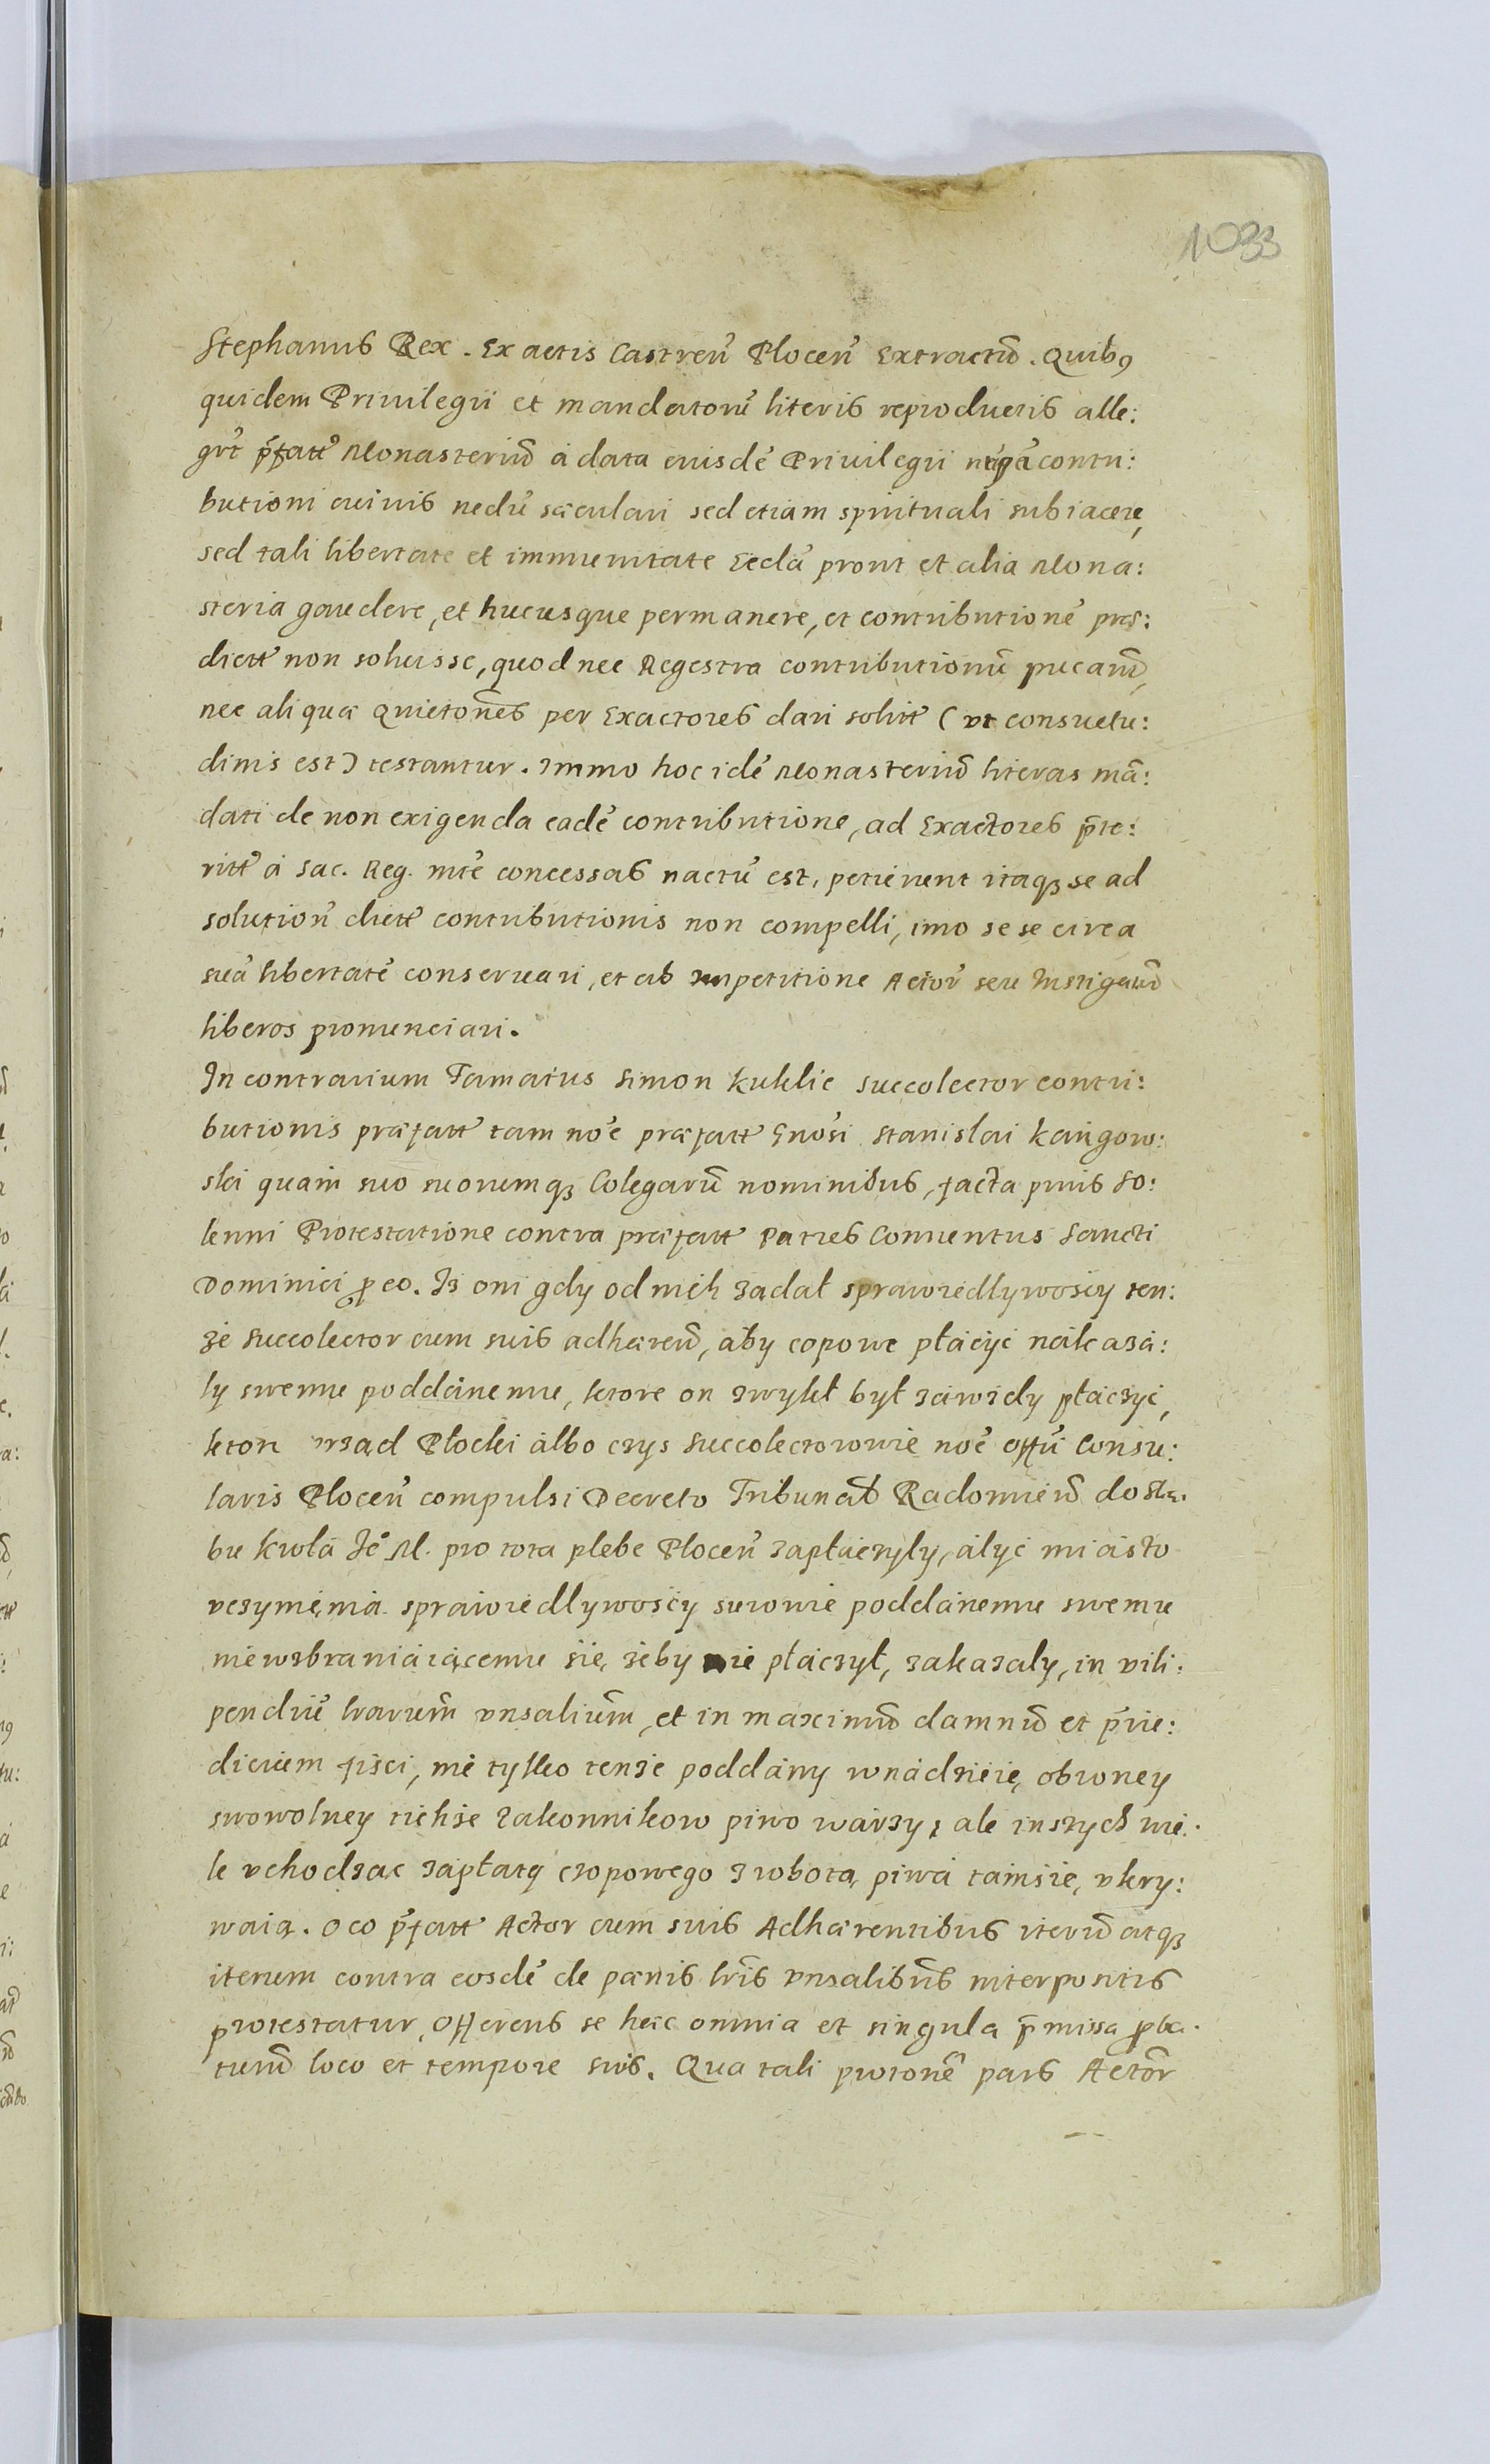 1033
Stephanus Rex. Ex actis Castreñ Plocen̄ Extractū. Quibꝰ
quidem Priuilegii et mandatorū literis reproductis alle:
gūt p̄fatt Monasteriū a data eiusdē Priuilegii contri:
butioni cuiuis nedū sæculari sed etiam spirituali subiacere,
sed tali libertate et immunitate Eccla prout et alia Mona:
steria gaudere, et hucusque permanere, et contributionē præ:
dictt non soluisse, quod nec Regestra contributionū
nec aliqua quietōnes per Exactores dari solitt (vt consuetu:
dinis est) testantur. Immo hoc idē Monasteriū literas mā:
dati de non exigenda eadē contributione, ad Exactores p̄te:
ritt a Sac. Reg. mte concessas nactū est, petierunt itaqꝫ se ad
solution̄ dictt contributionis non compelli, imo se se circa
suā libertatē conseruari, et ab impetitione Actor̄ seu Instigan̄
liberos pronunciari.
In contrarium Famatus Simon Kuklic succolector contri:
butionis præfatt tam noē præfatt Gnōsi Stanislai Kangow:
ski quam suo suorumqꝫ Colegarū nominibus, facta prius so:
lenni Protestatione contra præfatt Patres Conuentus Sancti
Dominici ꝑ eo. Iz oni gdy od nich ządał sprawiedlywosćy ten:
ze succolector cum suis adhæren̄, aby copowe płacyc nakaza:
ly swemu poddanemu, ktore on zwykł był zawzdy płaczyc,
ktore vrząd Płocki albo czys succolectorowie noē offū Consu:
laris Plocen̄ compulsi Decreto Tribunal Radomien̄ do Skar:
bu Krola Jē M. pro tota plebe Plocen̄ zapłaczyly, alyc miasto
vczymęnia sprawiedlywosćy surowie poddanemu swemu
niewzbraniaiącemu się, zeby nie płaczył, zakazaly, in vili:
pendiū lrarum vnsalium, et in maximū damnū et p̄iu:
dicium fisci, nie tylko tenze poddany w nadzieię obroney
swowolney tichze zakonnikow piwo warzy, ale inszych wie:
le vchodząc zapłatę czopowego z robotą piwa tamsie, vkry:
waią. O co p̄fatt Actor cum suis Adhærentibus iterū atqꝫ
iterum contra eosdē de pænis lris vnsalibus interpositis
protestatur, Offerens se hæc omnia et singula p̄missa ꝓba:
turū loco et tempore suis. Qua tali protonē pars Actor̄